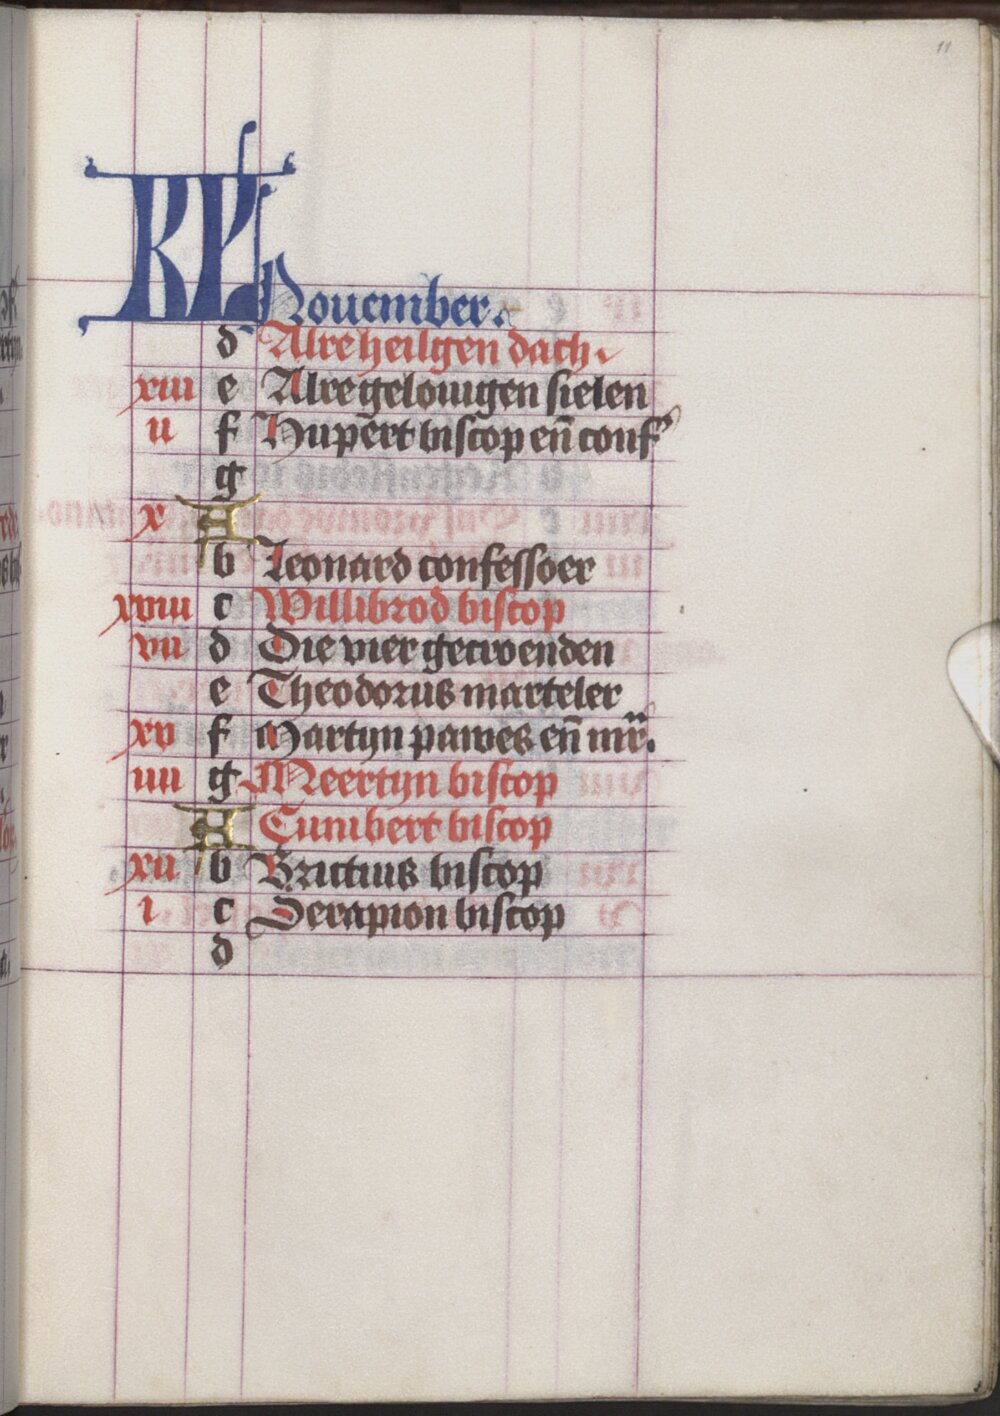 11
KL Nouember.
d Alre heilgen dach
xiii e Alre gelouigen sielen
ii f Hupert biscop en̄ conf
g
x A
b Leonard confessoer
xviii c Willibrod biscop
vii d Die vier gecroenden
e Theodorus marteler
xv f Martyn pawes en̄ mr̄.
iiii g Meertyn biscop
A Cunibert biscop
xii b Brictius biscop
i c Serapion biscop
d